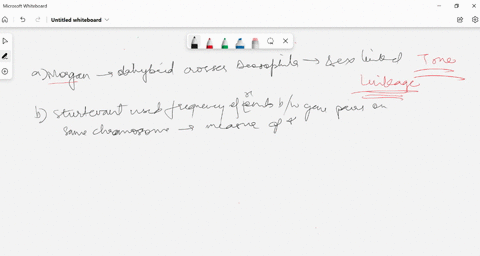 Microsoft Whiteboard
Untitled whiteboard
a) Morgan → dihybrid crosses Drosophila → sex linked
Linkage
b) Sturtevant used frequency of b/w gene pairs on
same chromosome → measure of